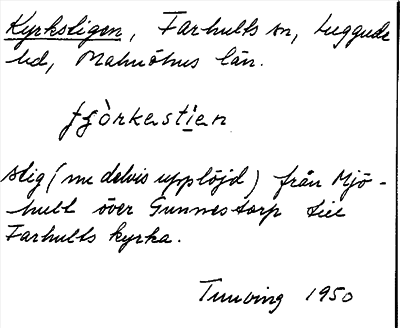 Kyrkstigen, Farhults sn, Luggude
hd, Malmöhus län.
stig (nu delvis upplöjd) från Mjö-
hult över Gunnestorp till
Farhults kyrka.
Tuvving 1950